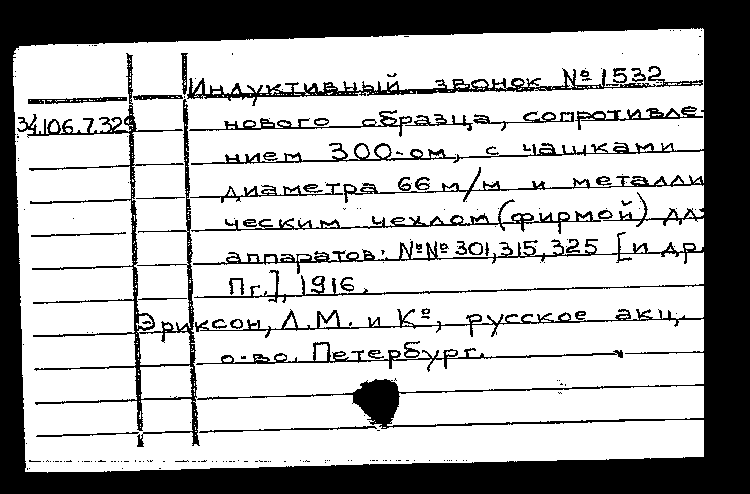 Индуктивный звонок № 1532
34.106.7.329
нового образца, сопротивле-
нием 300-ом, с чашками
диаметра 66 м/м и металли
ческим чехлом (фирмой) для
аппаратов: №№ 301, 315, 325 [и др.
Пг.], 1916.
Эриксон, Л.М. и К°, русское акц.
о-во. Петербург.